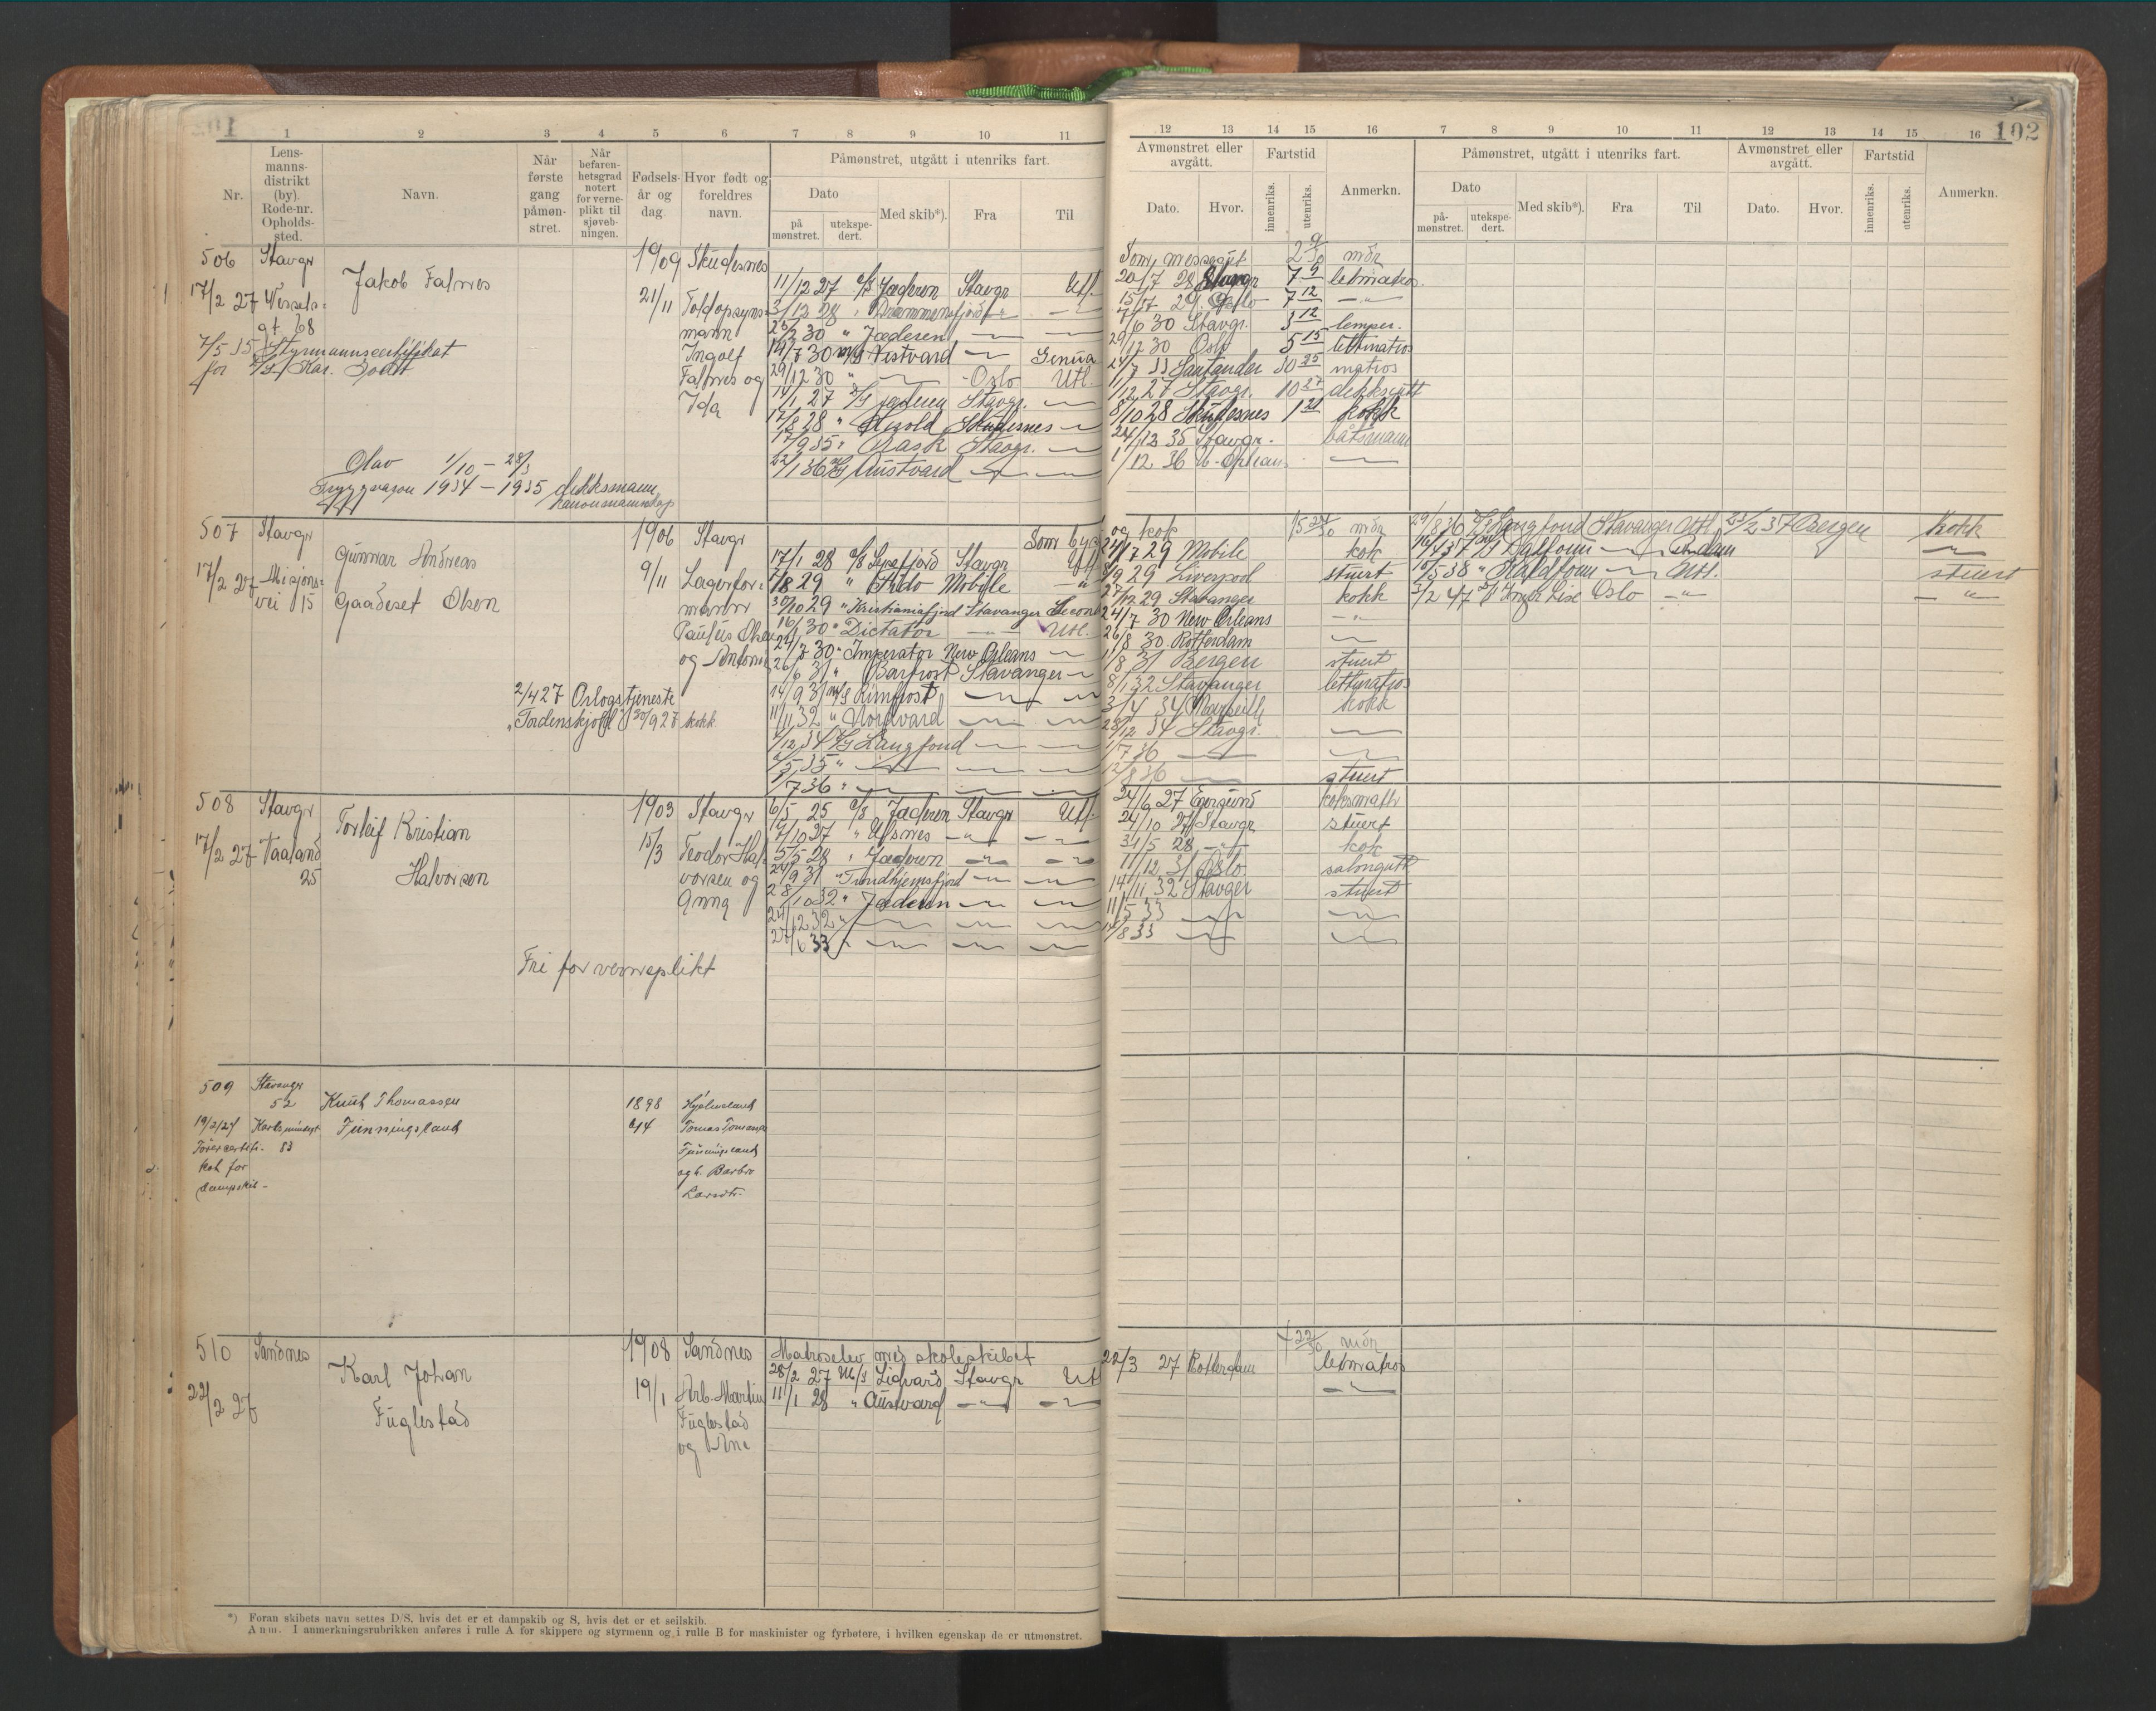 1 2 3 4 5 6 7 8 9 10 11
Nr. Lensmannsdistrikt (by). Rode-nr. Opholdssted. Navn. Når første gang påmønstret. Når befarenhetsgrad notert for verneplikt til sjøvebningen. Fødselsår og dag. Hvor født og foreldres navn. Påmønstret, utgått i utenriks fart.
Dato Med skib*). Fra Til
på mønstret. utekspedert.
506 Stavgr Jakob Falnes 1909 Skudesnes
17/2 27 Wessels- 21/11 Toldopsyns- 11/12 27 D/S Jæderen Stavgr Utl.
gt 68 mann 3/12 28 " Drammensfjord
7/5 35 Styrmannscertifikat Ingolf 30 " Jæderen
for Falnes og 14/7 30 M/S Vestvard Genua
Ida 29/12 30 " Oslo Utl.
27 D/S Jæderen Stavgr.
28 " Skudesnes
17/9 35 " Rask Stavgr.
22/1 36 M/S Austvard
Olav 1/10 - 28/3
Tryggvason 1934 - 1935 dekksmann
kanonmannskap
507 Stavgr Gunnar Andreas 1906 Stavgr Som
17/2 27 Misjons- Gaadeset Olsen 9/11 Lagerfor- 17/1 28 D/S Lysefjord Stavgr Utl
vei 15 mann 7/8 29 " Mobile
Paulus Olsen 30/10 29 " Kristianiafjord Stavanger
og Antonie 16/1 30 " Dictator Utl.
30 " Imperator New Orleans
26/6 31 " Barfrost Stavanger
2/4 27 Orlogstjeneste 14/9 31 M/S Rimfrost
"Tordenskjold" 30/9 27 kokk 11/11 32 " Nordvard
34 D/S Langfond
35 "
7 36 "
508 Stavgr Torleif Kristian 1903 Stavgr 6/5 25 D/S Jæderen Stavgr Utl.
17/2 27 Vaaland Halvorsen 15/3 Teodor Hal- 7/10 27 " Utsnes
25 vorsen og 5/5 28 " Jæderen
Anna 24/9 31 " Trondhjemsfjord
28/10 32 " Jæderen
24/12 32 "
27/6 33 "
Fri for verneplikt
509 Stavanger 52 Knut Thomassen 1898 Hjelmeland
19/2 27 Karlsminnegt 83 Funningsland 6/4 Tomas Tomassen
Førercertifi- Funningsland
kat for og h. Barbro
dampskib - Larsdtr.
510 Sandnes Karl Johan 1908 Sandnes Matroselev med skoleskibet
22/2 27 Fuglestad 19/1 Arb. Martin 28/2 27 M/S Lidvard Stavgr Utl
Fuglestad 11/1 28 " Austvard
og Ane
*) Foran skibets navn settes D/S, hvis det er et dampskib og S, hvis det er et seilskib.
Anm. I anmerkningsrubrikken anføres i rulle A for skippere og styrmenn og i rulle B for maskinister og fyrbøtere, i hvilken egenskap de er utmønstret.
12 13 14 15 16 7 8 9 10 11 12 13 14 15 16 102
Avmønstret eller avgått. Fartstid Anmerkn. Påmønstret, utgått i utenriks fart. Avmønstret eller avgått. Fartstid Anmerkn.
Dato. Hvor. innenriks. utenriks. Dato Med skib*). Fra Til Dato. Hvor. innenriks. utenriks.
på-mønstret. utekspedert.
Som messegut 2 9/30 mdr
20/7 28 Stavgr 7 letmatros.
29 Oslo 7 12
7/6 30 Stavgr. 3 12 lemper.
29/12 30 Oslo 5 15 lettmatros
33 Santander 30 25 matros
11/12 27 Stavgr. 10 27 dekksgutt
8/10 28 Skudesnes 1 21 kokk
24/12 35 Stavgr. båtsmann
1/12 36 N-Orleans
og kok 15 24/30 mdr 29/8 36 D/S Langfond Stavanger Utl. 23/2 37 Bergen kokk
7 29 Mobile kok 37
9 29 Liverpool stuert 38 " Utl. stuert
27/12 29 Stavanger kokk 3/2 47 Oslo
24/7 30 New Orleans
26/8 30 Rotterdam
1/8 31 Bergen stuert
8/1 32 Stavanger lettmatros
3/4 34 Marseille kokk
28/12 34 Stavgr.
1/7 36
12/8 36 stuert
24/6 27 Egersund koksmath
24/10 27 Stavgr stuert
31/5 28 kok
11/12 31 Oslo salongutt
14/11 32 Stavger stuert
11/5 33
8 33
4 22/30 mdr
22/3 27 Rotterdam letmatros